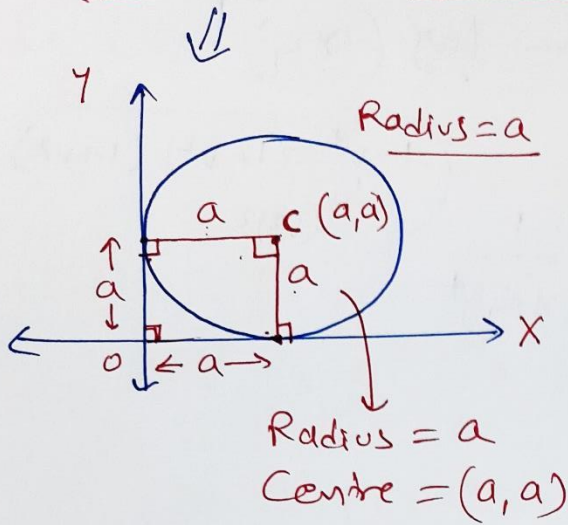 Y
Radius = a
a
C (a,a)
a
a
X
O
a
Radius = a
Centre = (a, a)